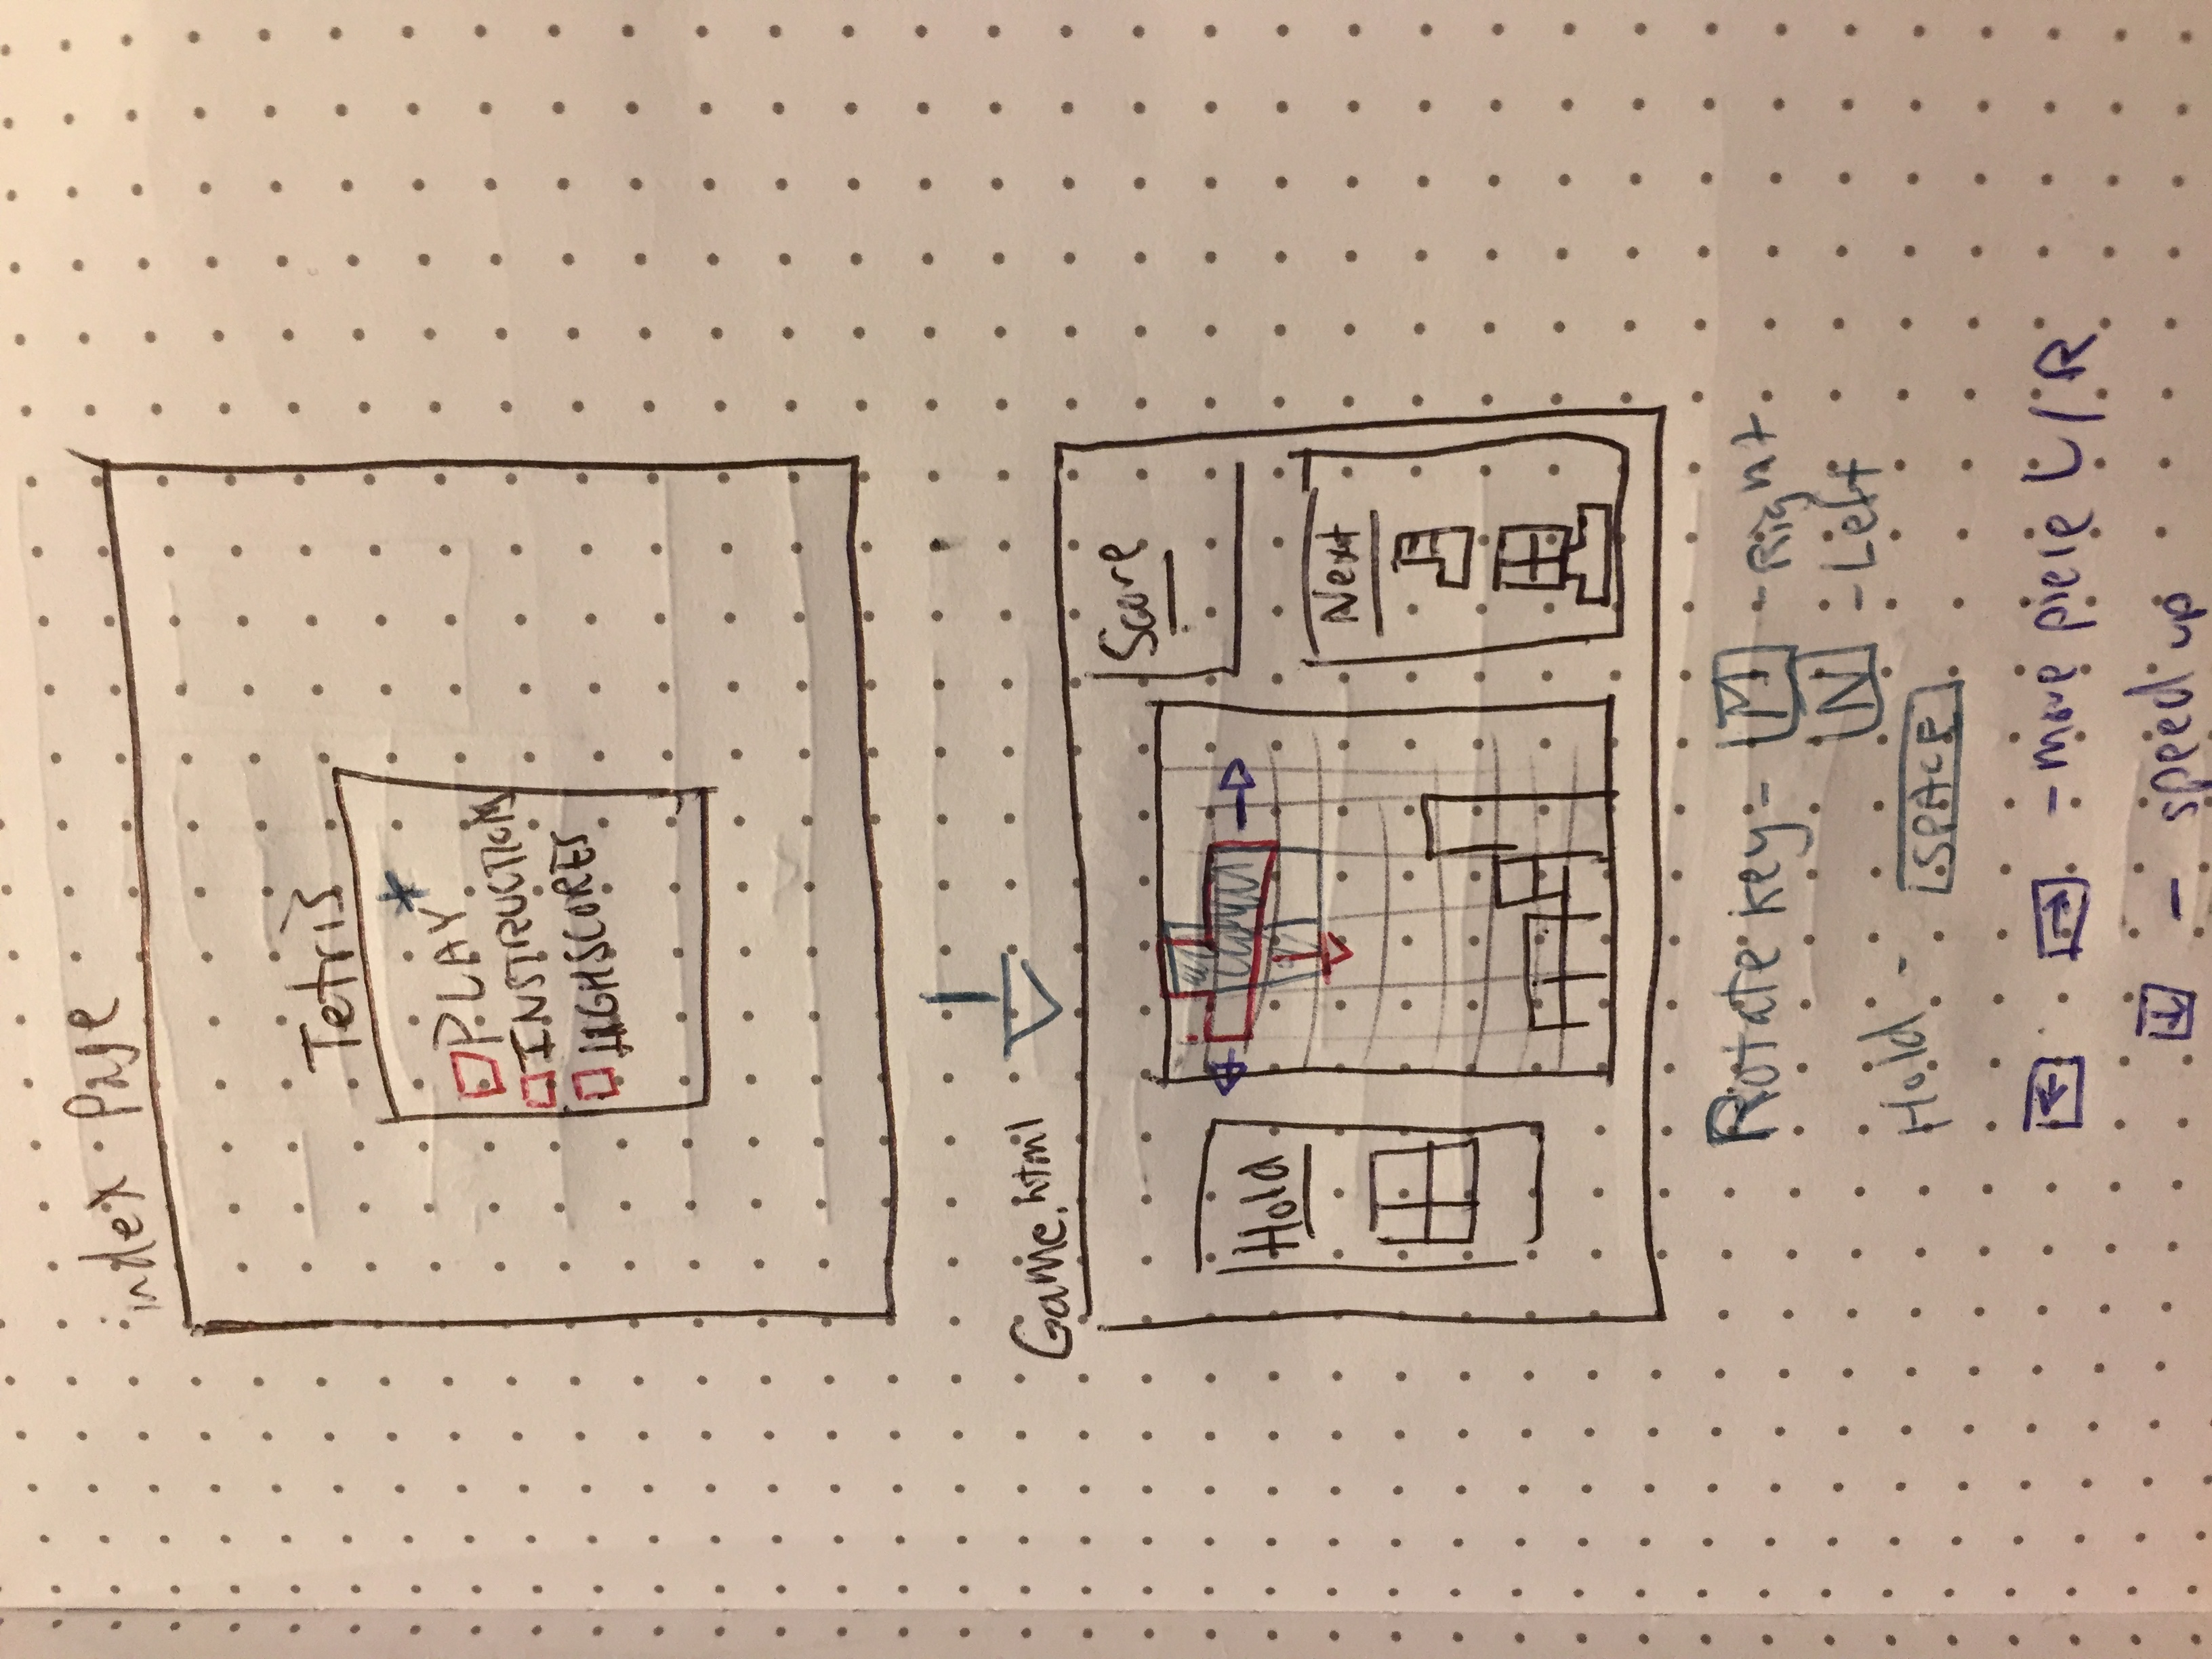 index Page
Tetris
PLAY*
INSTRUCTIONS
HIGHSCORES
Game.html
Score
Hold
Next
Rotate key - M - Right
N - Left
Hold - SPACE
← → - move piece L/R
↓ - speed up